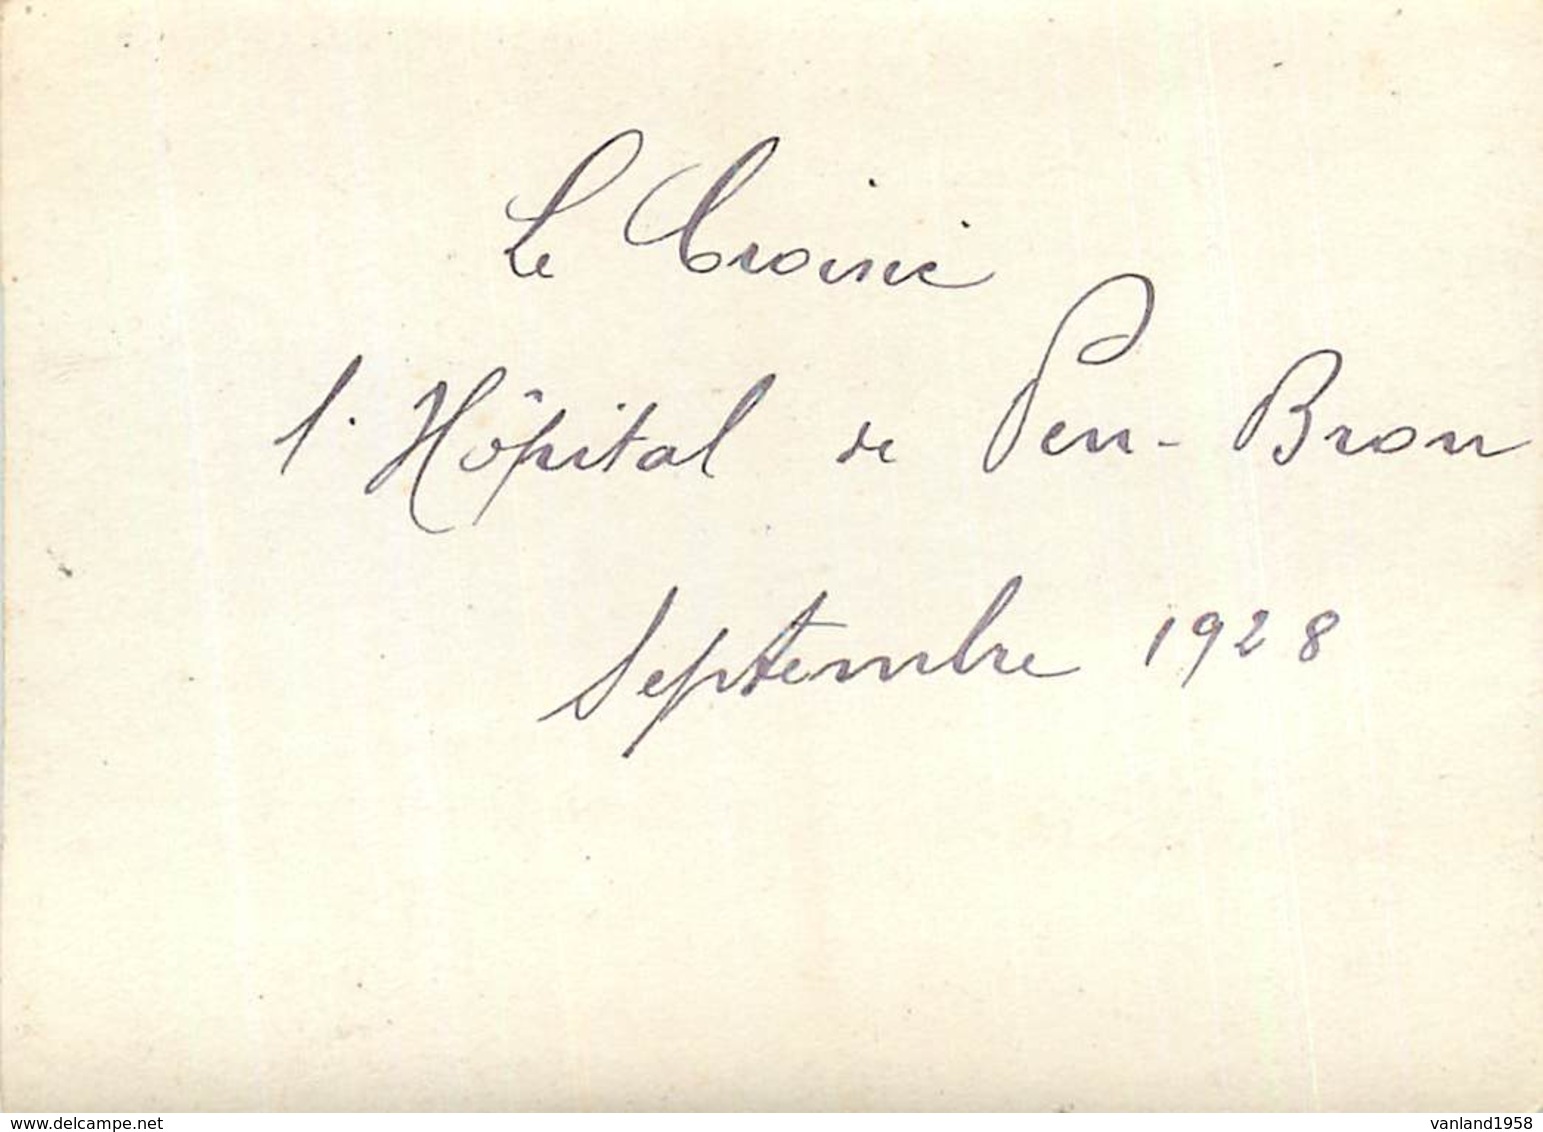 Le Croisic
l'Hôpital de Pen-Bron
Septembre 1928
www.delcampe.net
vanland1958